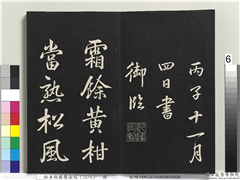 丙子十一月
四日書
御臨
霜餘黃柑
當熟松風
6